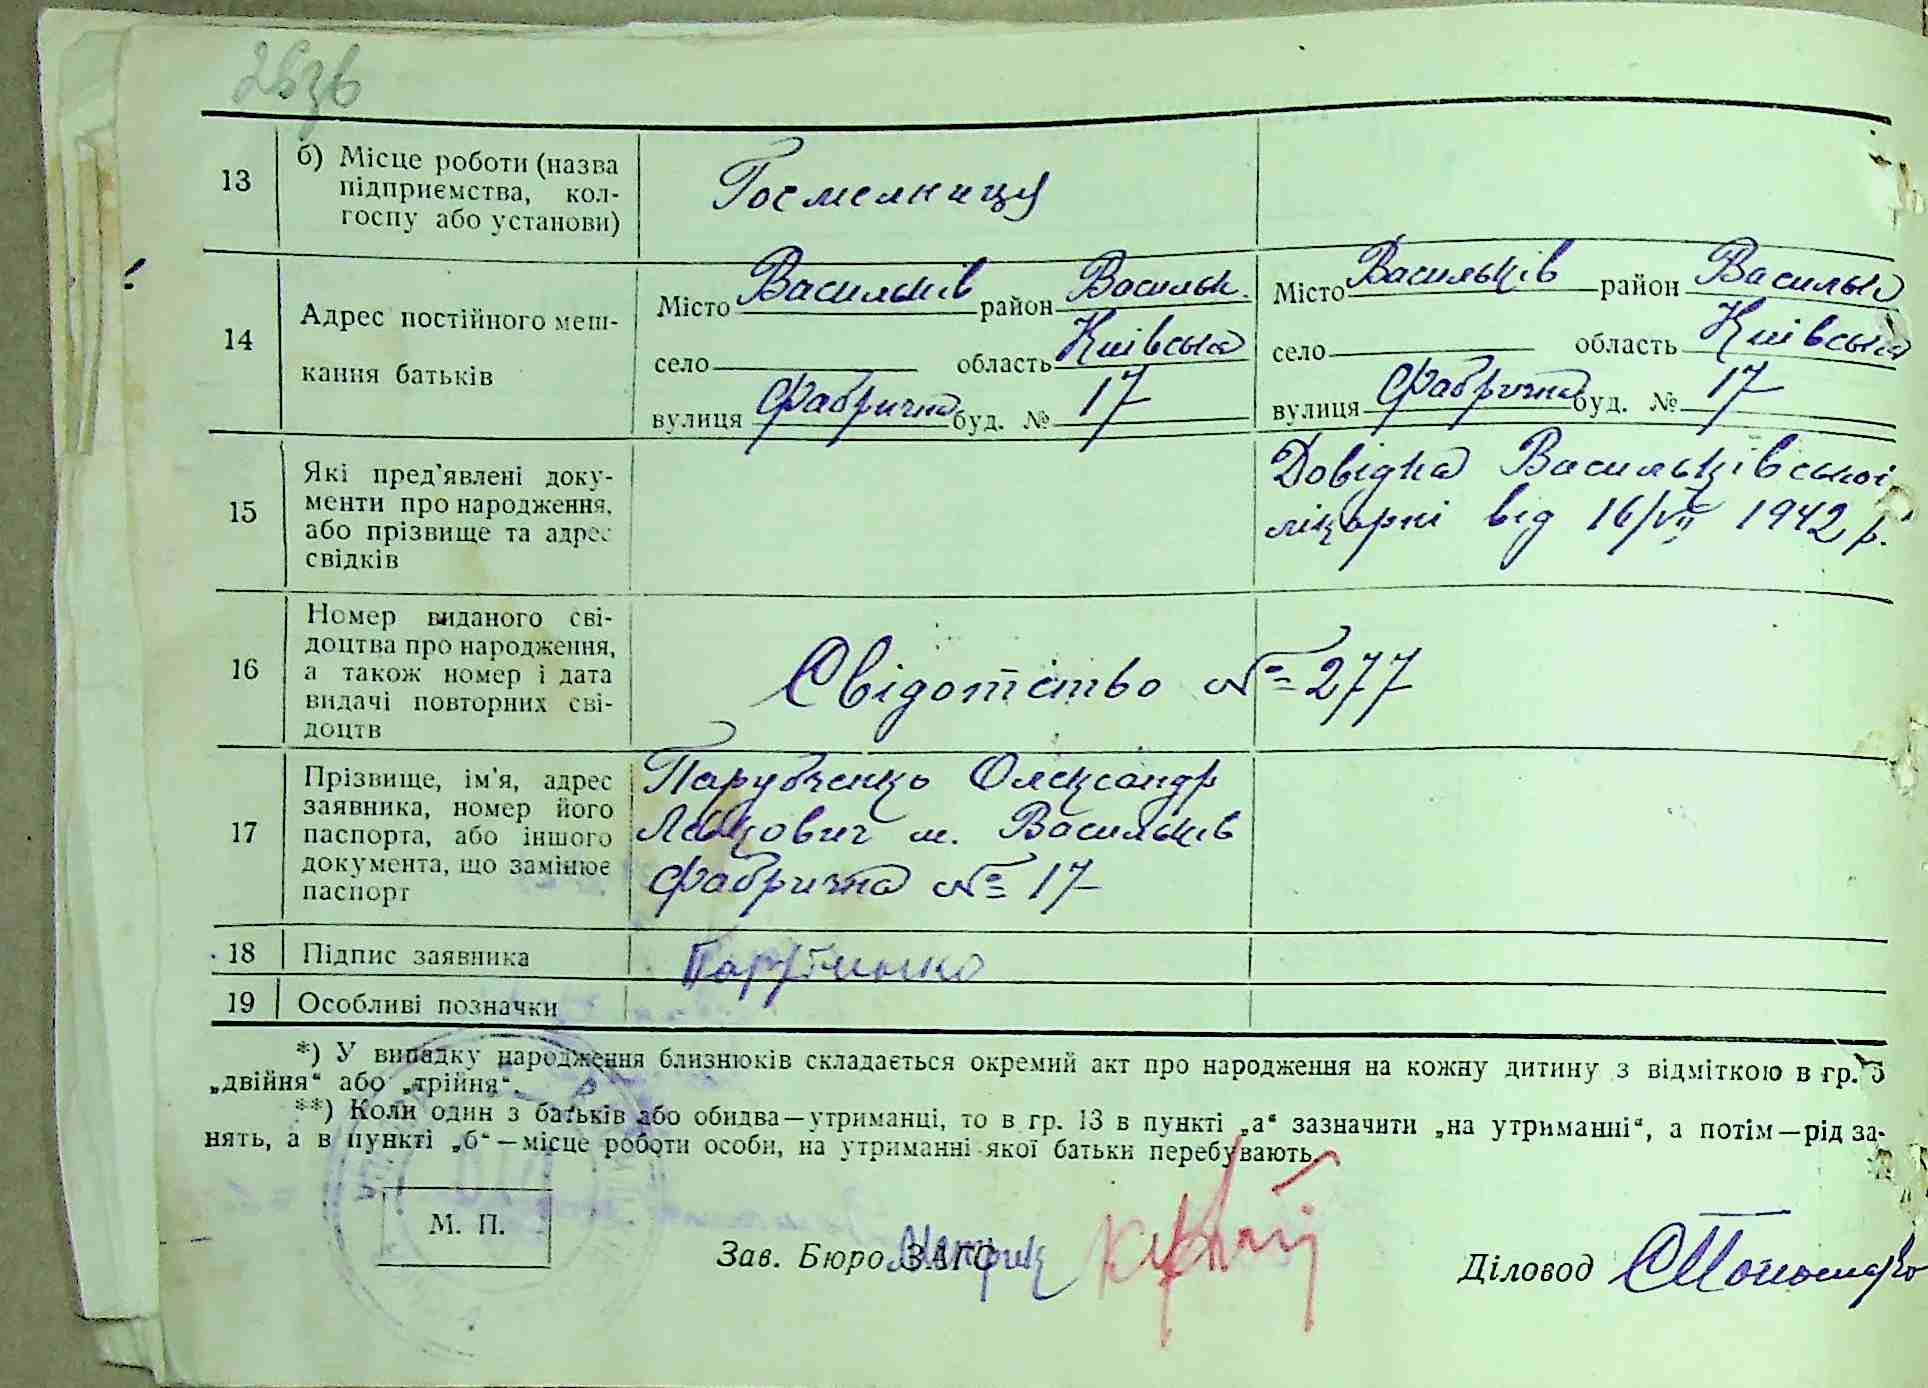 13
б) Місце роботи (назва
підприємства, кол-
госпу або установи)
Госмелниця
14
Адрес постійного меш-
кання батьків
Місто Васильків район Васильк.
село область Київська
вулиця Фабрична буд. № 17
Місто Васильків район Васильк
село область Київська
вулиця Фабрична буд. № 17
15
Які пред'явлені доку-
менти про народження,
або прізвище та адрес
свідків
Довідка Васильківської
лікарні від 16/VII 1942 р.
16
Номер виданого сві-
доцтва про народження,
а також номер і дата
видачі повторних сві-
доцтв
Свідотство № 277
17
Прізвище, ім'я, адрес
заявника, номер його
паспорта, або іншого
документа, що замінює
паспорт
Парубченко Олександр
м. Васильків
Фабрична № 17
18
Підпис заявника
19
Особливі позначки
*) У випадку народження близнюків складається окремий акт про народження на кожну дитину з відміткою в гр. 5
„двійня“ або „трійня“.
**) Коли один з батьків або обидва—утриманці, то в гр. 13 в пункті „а“ зазначити „на утриманні“, а потім—рід за-
нять, а в пункті „б“—місце роботи особи, на утриманні якої батьки перебувають.
М. П.
Зав. Бюро ЗАГС
Діловод